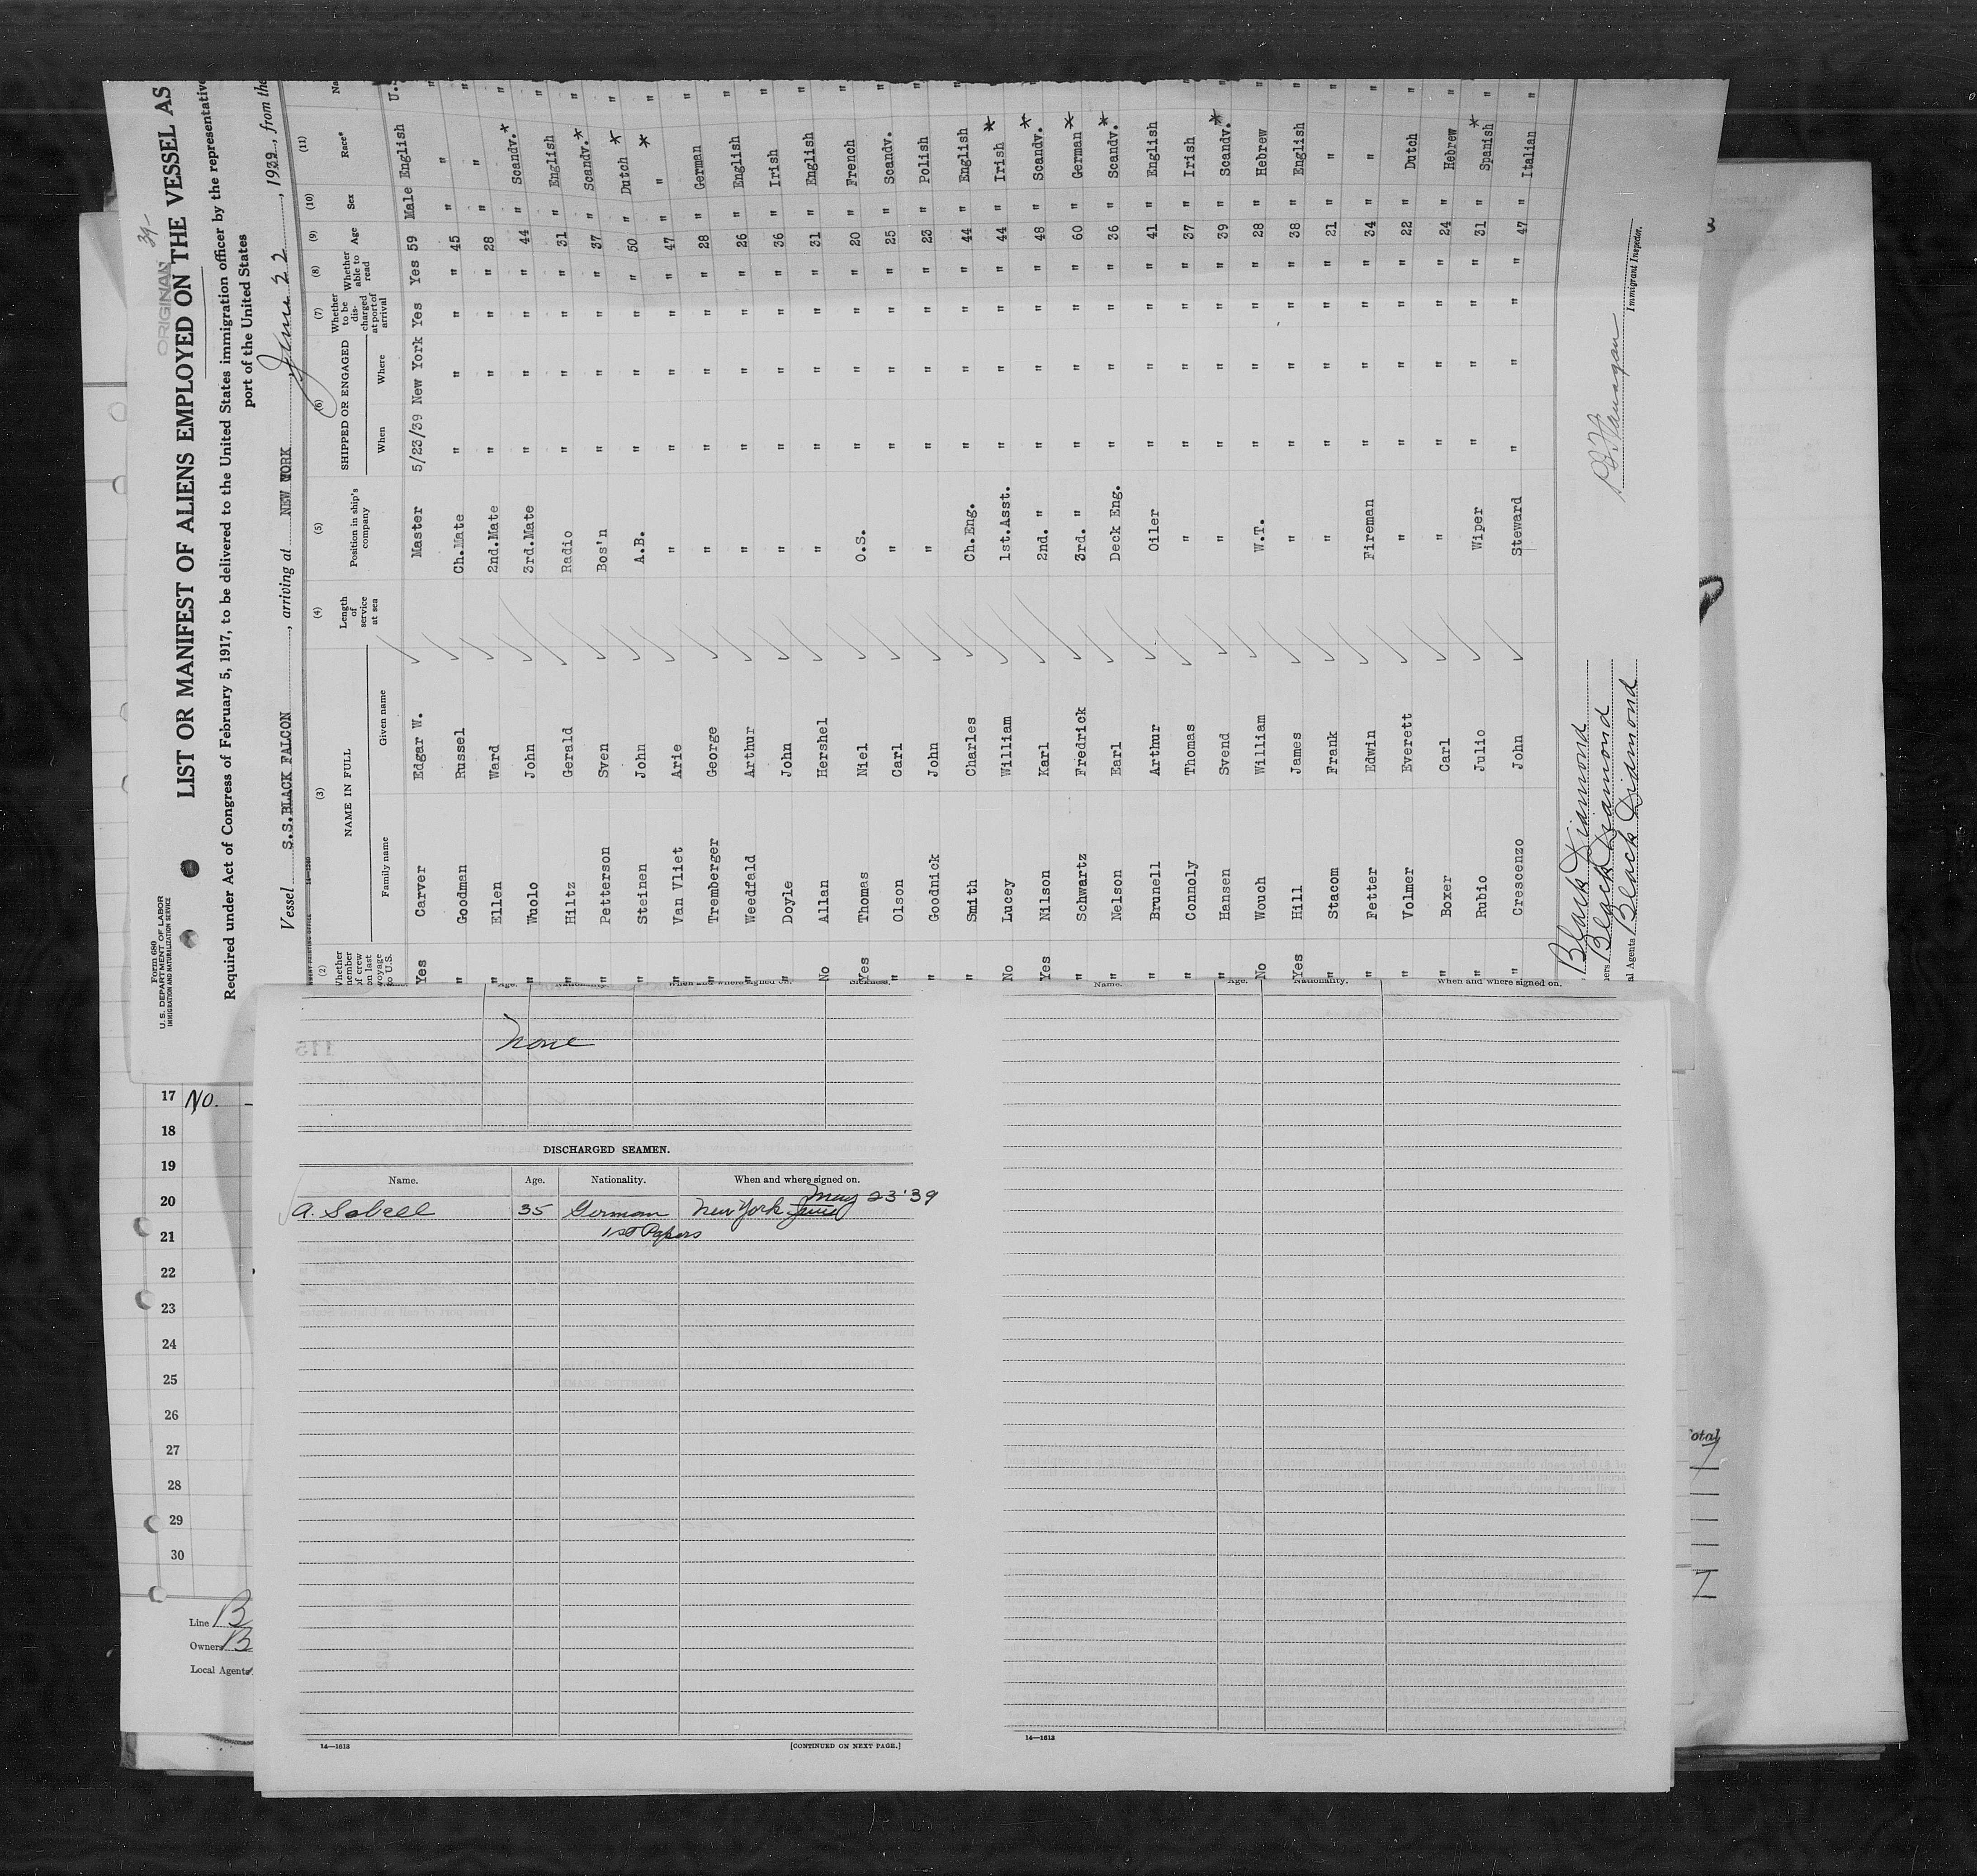 ORIGINAL 39-
Form 680
U. S. DEPARTMENT OF LABOR
IMMIGRATION AND NATURALIZATION SERVICE
LIST OR MANIFEST OF ALIENS EMPLOYED ON THE VESSEL AS
Required under Act of Congress of February 5, 1917, to be delivered to the United States immigration officer by the representative
port of the United States
Vessel S.S.BLACK FALCON, arriving at NEW YORK June 22, 1939, from the
(2) (3) (4) (5) (6) (7) (8) (9) (10) (11)
NAME IN FULL SHIPPED OR ENGAGED
Whether member of crew on last voyage to U.S. Family name Given name Length of service at sea Position in ship's company When Where Whether to be discharged at port of arrival Whether able to read Age Sex Race*
Yes Carver Edgar W. Master 5/23/39 New York Yes Yes 59 Male English U.
" Goodman Russel Ch.Mate " " " " 45 " " "
" Ellen Ward 2nd.Mate " " " " 28 " " "
" Wuolo John 3rd.Mate " " " " 44 " Scandv.* "
" Hiltz Gerald Radio " " " " 31 " English "
" Petterson Sven Bos'n " " " " 37 " Scandv.* "
" Steinen John A.B. " " " " 50 " Dutch * "
" Van Vliet Arie " " " " " 47 " " * "
" Tremberger George " " " " " 28 " German "
" Weedfald Arthur " " " " " 26 " English "
" Doyle John " " " " " 36 " Irish "
No Allan Hershel " " " " " 31 " English "
Yes Thomas Niel O.S. " " " " 20 " French "
" Olson Carl " " " " " 25 " Scandv. "
" Goodnick John " " " " " 23 " Polish "
" Smith Charles Ch.Eng. " " " " 44 " English "
No Lucey William 1st.Asst. " " " " 44 " Irish * "
Yes Nilson Karl 2nd. " " " " " 48 " Scandv.* "
" Schwartz Fredrick 3rd. " " " " " 60 " German * "
" Nelson Earl Deck Eng. " " " " 36 " Scandv.* "
" Brunell Arthur Oiler " " " " 41 " English "
" Connoly Thomas " " " " " 37 " Irish "
" Hansen Svend " " " " " 39 " Scandv.* "
No Wouch William W.T. " " " " 28 " Hebrew "
Yes Hill James " " " " " 38 " English "
" Stacom Frank " " " " " 21 " " "
" Fetter Edwin Fireman " " " " 34 " " "
" Volmer Everett " " " " " 22 " Dutch "
" Boxer Carl " " " " " 24 " Hebrew "
" Rubio Julio Wiper " " " " 31 " Spanish * "
" Crescenzo John Steward " " " " 47 " Italian "
Black Diamond
Black Diamond
al Agents Black Diamond
Immigrant Inspector.
Age. Nationality. When and where signed on. Sickness.
None
DISCHARGED SEAMEN.
Name. Age. Nationality. When and where signed on.
May 23'39
A. Sabell 35 German New York June
1st Papers
14—1613 [CONTINUED ON NEXT PAGE.]
Name. Age. Nationality. When and where signed on.
14—1613
17 No.
18
19
20
21
22
23
24
25
26
27
28
29
30
Line B
Owners B
Local Agents
Total